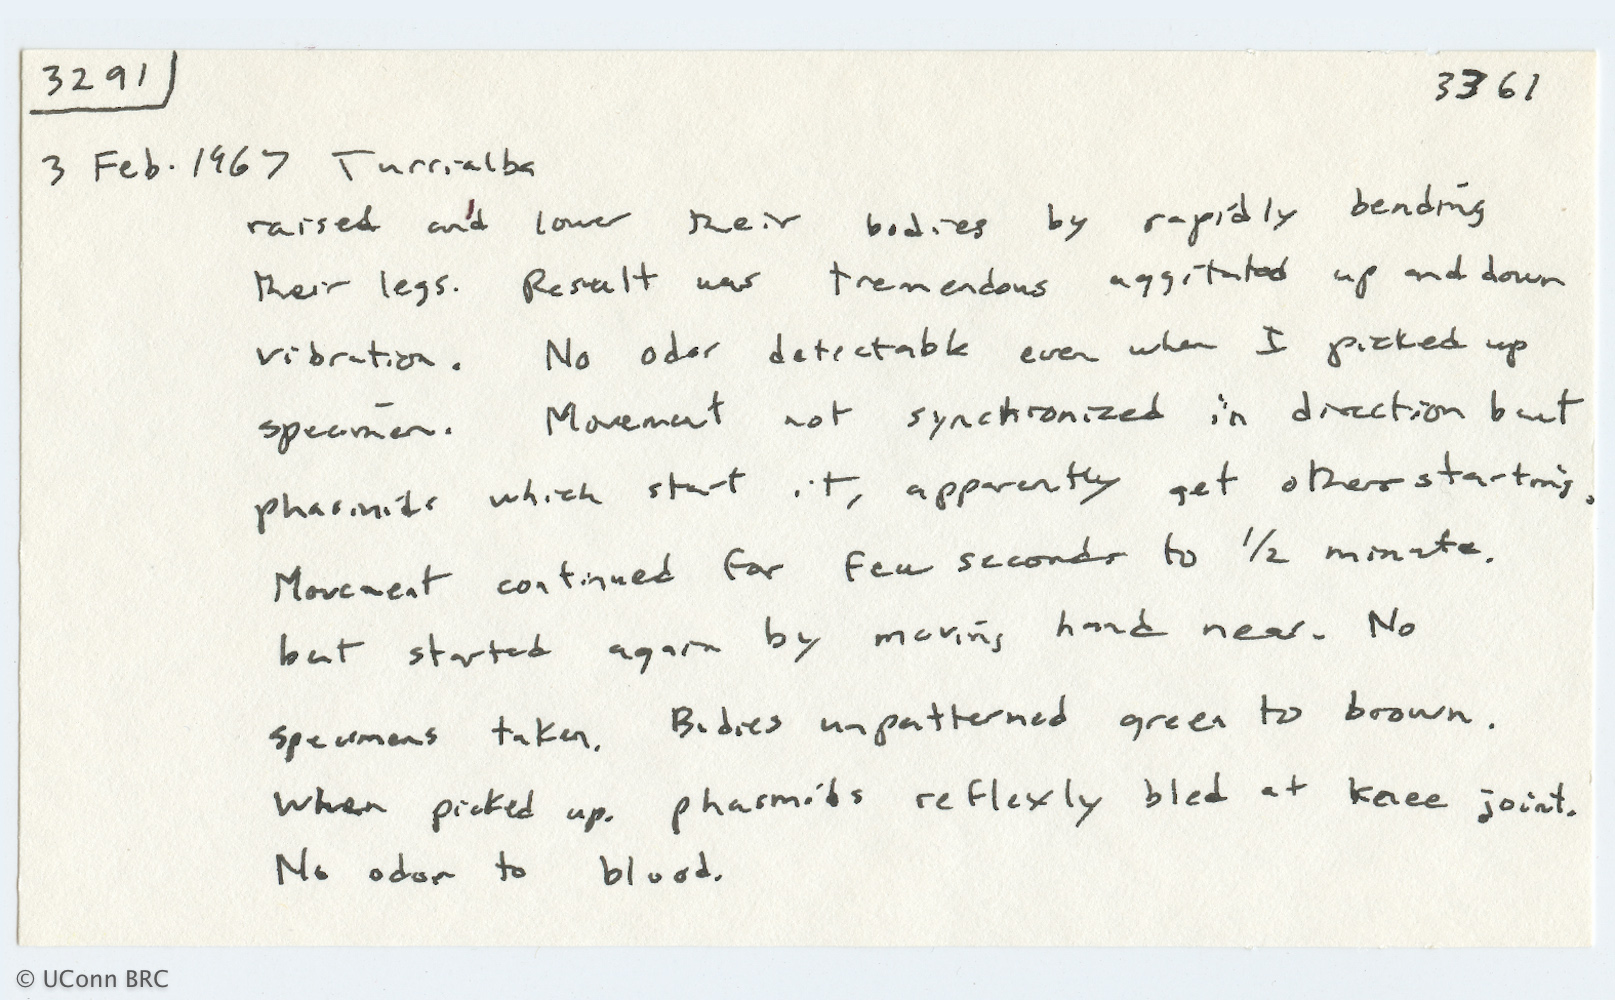 3291 3361
3 Feb. 1967 Turrialba
raised and lower their bodies by rapidly bending
their legs. Result was tremendous aggitated up and down
vibration. No odor detectable even when I picked up
specimen. Movement not synchronized in direction but
phasmids which start it, apparently get others starting.
Movement continued for few seconds to 1/2 minute.
but started again by moving hand near. No
specimens taken. Bodies unpatterned green to brown.
When picked up. phasmids reflexly bled at knee joint.
No odor to blood.
© UConn BRC